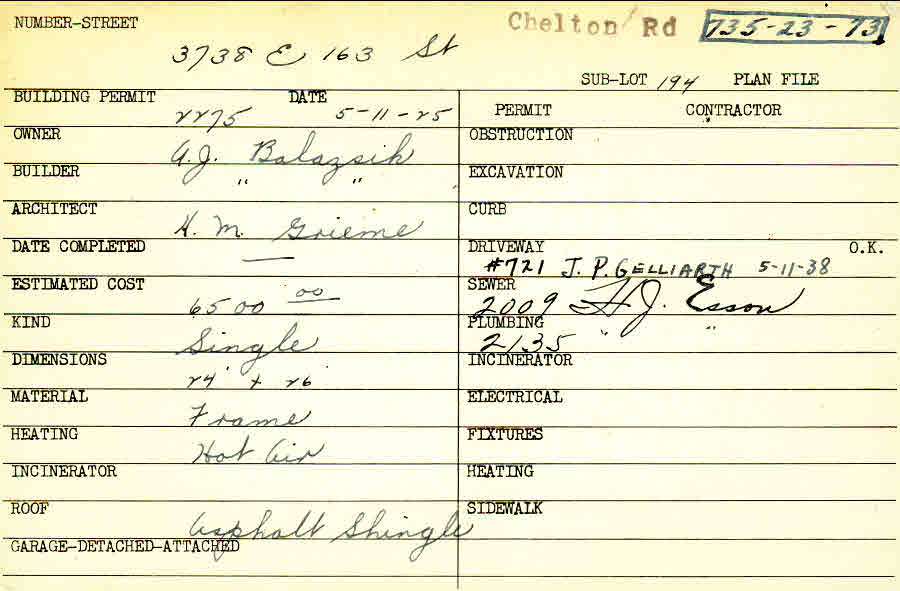 NUMBER-STREET
Chelton Rd 735-23-73
3738 E 163 St
SUB-LOT 194 PLAN FILE
BUILDING PERMIT DATE
2275 5-11-25
OWNER
A.J. Balazsik
BUILDER
" "
ARCHITECT
H. M. Grieme
DATE COMPLETED
—
ESTIMATED COST
6500 00
KIND
Single
DIMENSIONS
24' x 26'
MATERIAL
Frame
HEATING
Hot Air
INCINERATOR
ROOF
Asphalt Shingle
GARAGE-DETACHED-ATTACHED
PERMIT CONTRACTOR
OBSTRUCTION
EXCAVATION
CURB
DRIVEWAY O.K.
#721 J. P. GELLIARTH 5-11-38
SEWER
2009 H.J. Esson
PLUMBING
2135 " "
INCINERATOR
ELECTRICAL
FIXTURES
HEATING
SIDEWALK